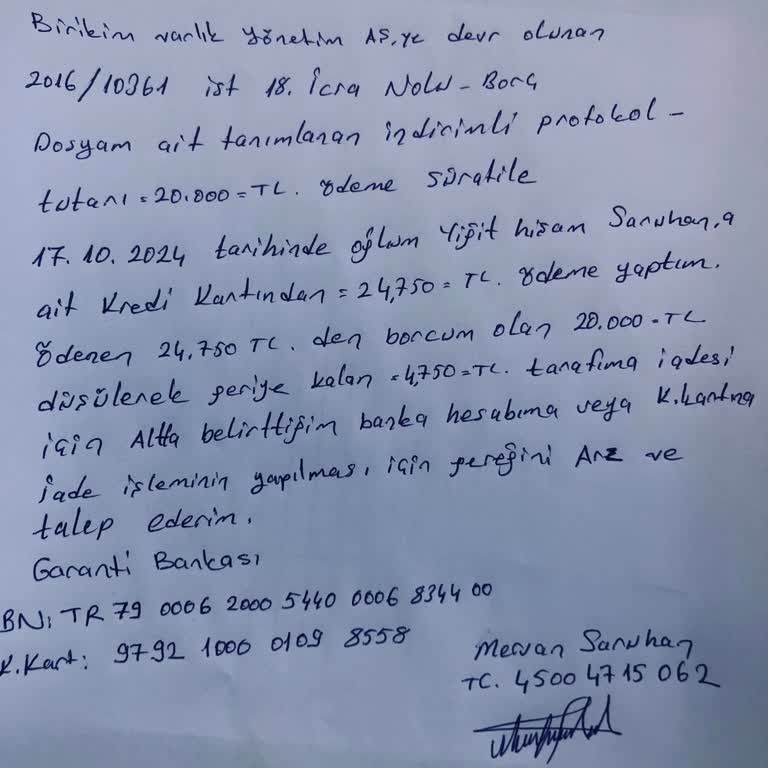 Birikim varlık Yönetim AŞ,ye devr olunan
2016/10361 ist 18. İcra Nolu - Borç
Dosyam ait tanımlanan indirimli protokol -
tutarı = 20.000 = TL. ödeme sûratile
17.10.2024 tarihinde oğlum Yiğit hişam Saruhan,a
ait Kredi Kartından = 24,750 = TL. ödeme yaptım.
Ödenen 24,750 TL. den borcum olan 20.000 - TL
düşülerek geriye kalan = 4,750 = TL. tarafıma iadesi
için Altta belirttiğim banka hesabıma veya K.kartına
iade işleminin yapılması için gereğini Arz ve
talep ederim.
Garanti Bankası
BN: TR 79 0006 2000 5440 0006 8344 00
K.Kart: 9792 1000 0109 8558
Mervan Saruhan
TC. 4500 4715 062